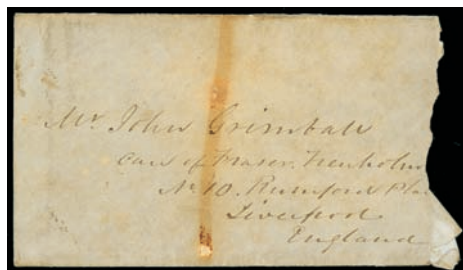 Mr John Grimball
Care of Fraser. Trenholm
No 10. Rumford Pla
Liverpool
England